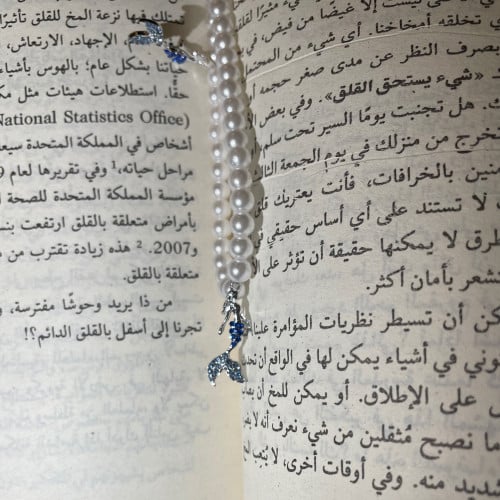 إلا غيضًا من فيض، في
تخلقه أمخاخنا. أي شيء من
بصرف النظر عن مدى صغر حجمه
«شيء يستحق القلق». وفي بعض
هل تجنبت يومًا السير تحت سلم
تخرج من منزلك في يوم الجمعة الثالث
بالخرافات، فأنت يعتريك قلق
لا تستند على أي أساس حقيقي
لا يمكنها حقيقة أن تؤثر على
شعر بأمان أكثر.
كن أن تسيطر نظريات المؤامرة علينا
في أشياء يمكن لها في الواقع أن تحدث
على الإطلاق. أو يمكن للمخ أن
ما نصبح مُثقلين من شيء نعرف أنه لا
ديد منه. وفي أوقات أخرى، لا يُتعب
تمتلك فيها نزعة المخ للقلق تأثيرًا
الإجهاد، الارتعاش،
حياتنا بشكل عام؛ بالهوس بأشياء
حقًّا. استطلاعات هيئات مثل
National Statistics Office)
أشخاص في المملكة المتحدة
مراحل حياته،¹ وفي تقريرها لعام
مؤسسة المملكة المتحدة للصحة
بأمراض متعلقة بالقلق ارتفعت
و2007. ² هذه زيادة تقترب من
متعلقة بالقلق.
من ذا يريد وحوشًا مفترسة،
تجرنا إلى أسفل بالقلق الدائم؟!